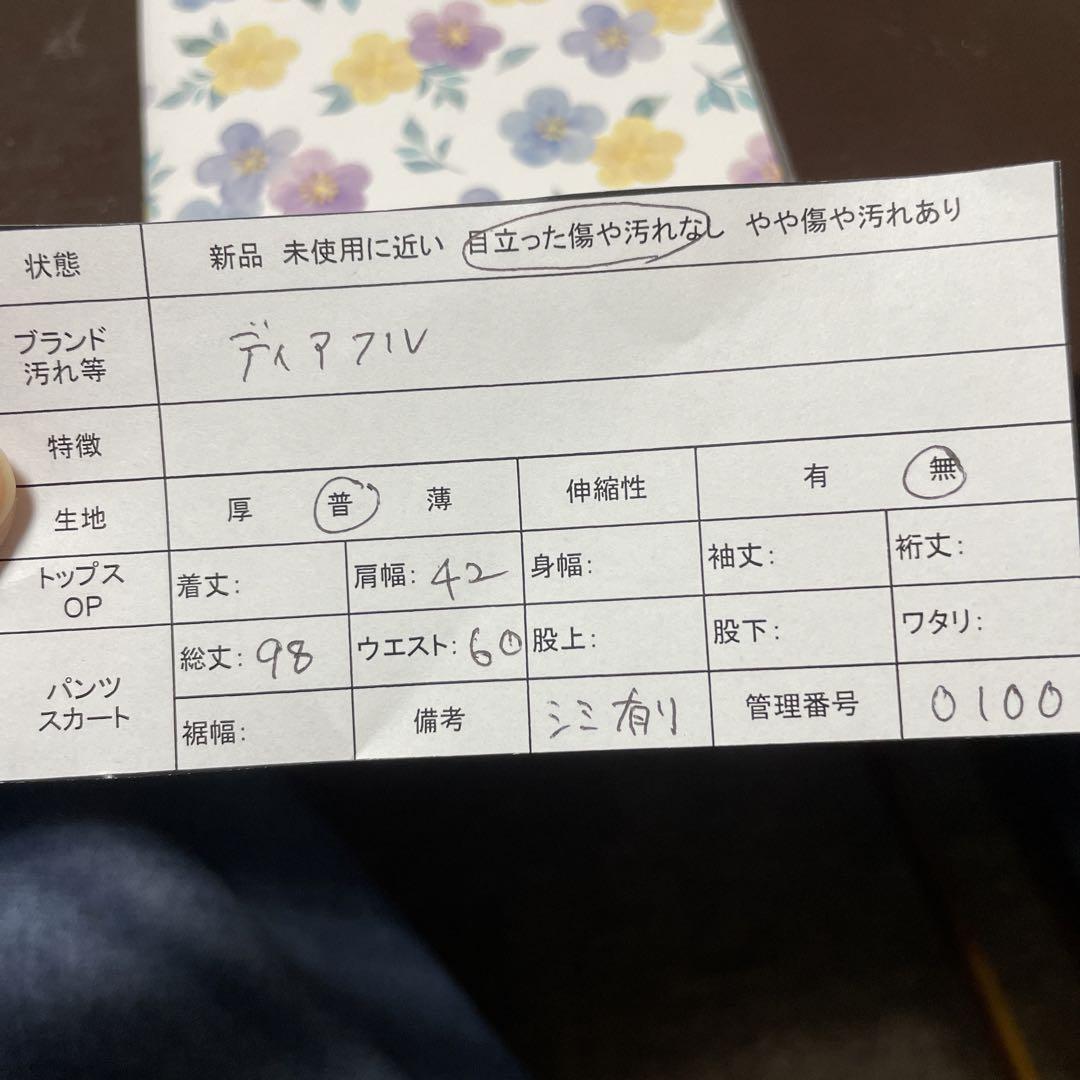 状態 新品 未使用に近い 目立った傷や汚れなし やや傷や汚れあり
ブランド
汚れ等
ディアフル
特徴
生地 厚 普 薄 伸縮性 有 無
トップス
OP
着丈: 肩幅: 42 身幅: 袖丈: 裄丈:
パンツ
スカート
総丈: 98 ウエスト: 60 股上: 股下: ワタリ:
裾幅: 備考 シミ有り 管理番号 0100